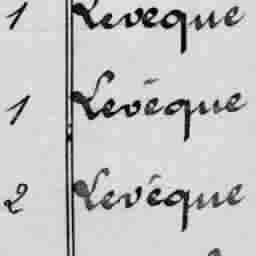 1 Leveque
1 Levêque
2 Levêque